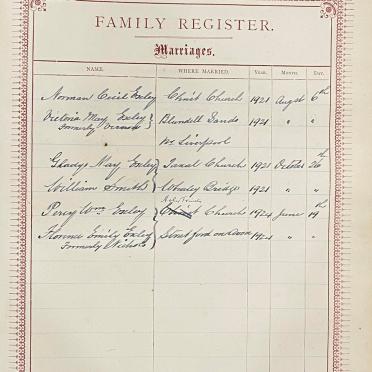 FAMILY REGISTER.
Marriages.
NAME. WHERE MARRIED. YEAR. MONTH. DAY.
Norman Cecil Exley Christ Church 1921 Augst 6th
Victoria May Exley } Blundell Sands 1921 " "
Formerly
Nr Liverpool
Gladys May Exley } Taxal Church 1921 October 26th
William Smith Whaley Bridge 1921 " "
Holy Trinity
Percy Wm Exley Christ Church 1924 June 19th
Florence Emily Exley } Stratford on Avon 1924 " "
Formerly Nichols